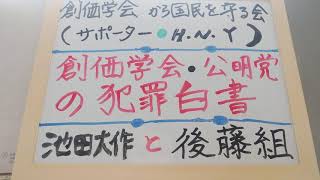 創価学会から国民を守る会
(サポーター●H.N.Y)
創価学会・公明党
の犯罪白書
池田大作と後藤組